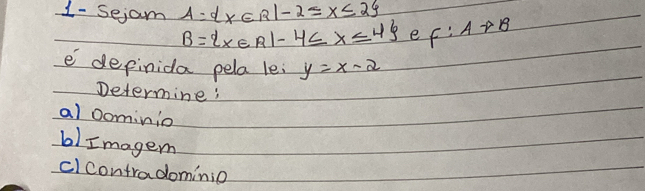 1- Sejam A={x ∈ R|-2≤x≤2}
B={x ∈ R|-4≤x≤4} e f: A→B
é definida pela lei y=x-2
Determine:
a) Dominio
b) Imagem
c) Contradomínio